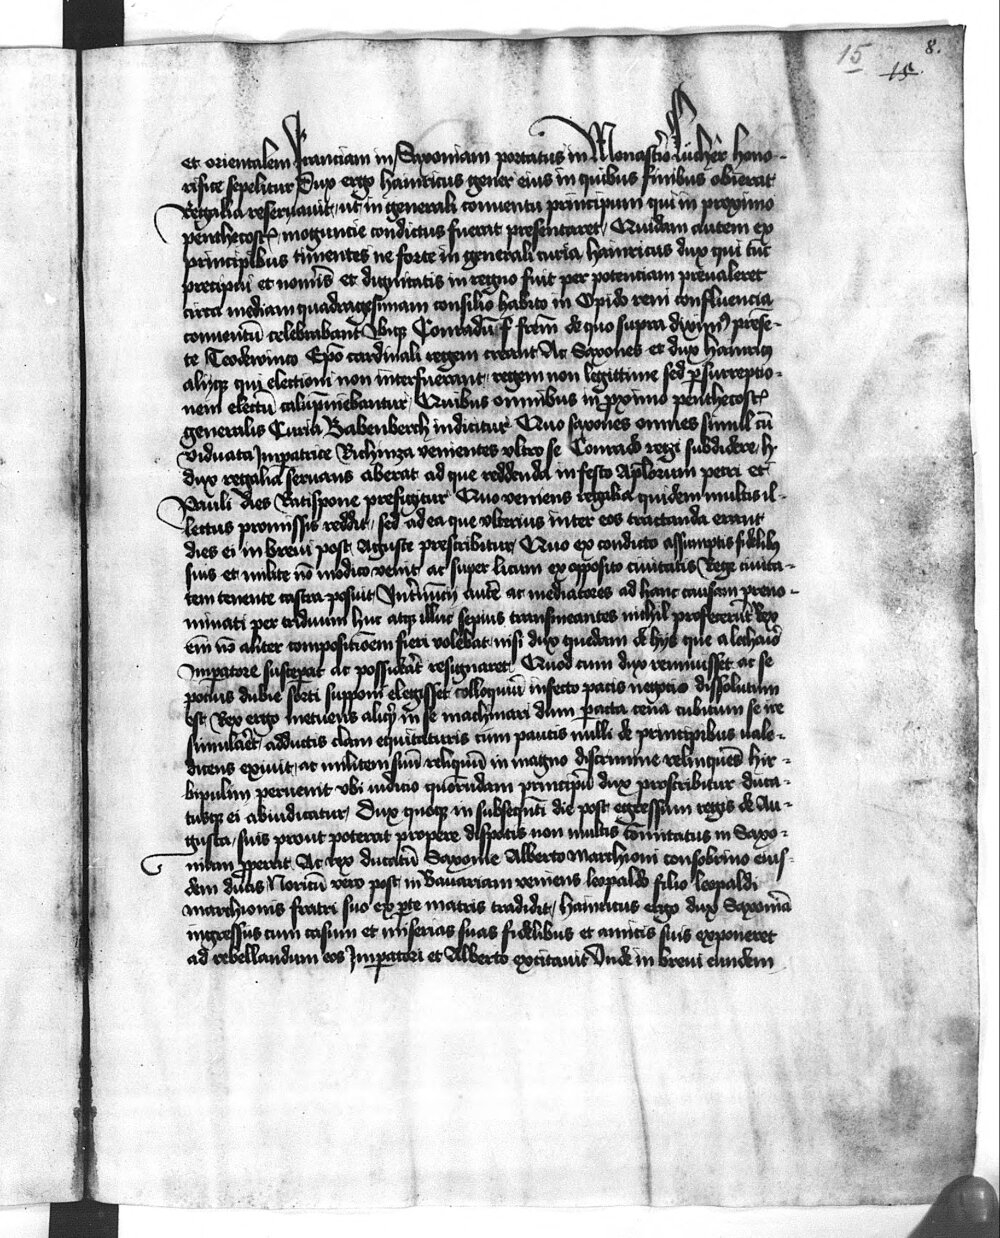 15 8.
15.
et orientalem Franciam in Saxoniam portatus in Monast̄io Lucher hono-
rifice sepelitur Dux ergo hainricus gener eius in quibus finibus obierat
Regalia reseruauit, ut in generali conuentu principum qui in proximo
penthecost moguncie condictus fuerat presentaret, Quidam autem ex
principibus timentes ne forte in generali curia hainricus dux qui tūc
precipui et nomīs et dignitatis in regno fuit per potenciam preualeret
circa mediam quadragesimam consilio habito in Opido reni confluencia
conuentū celebrabant Vbiqꝫ Conradū f̄ frēm de quo supra diximꝰ prese-
te Teodewinco Ep̄o cardinali regem creant Ac Saxones et dux hainricꝰ
aliiqꝫ qui electioni non interfuerant, regem non legittime sed ꝑ surreptio-
nem electū calūpniebantur, Quibus omnibus in ꝓximo penthecost
generalis Curia Babenberch indicitur Quo saxones omnes simul cū
viduata Impatrice Richinza venientes vltro se Conrado regi subdidere, h
dux regalia seruans aberat ad que reddenda in festo Apl̄orum petri et
Pauli dies Ratispone prefigitur Quo veniens regalia quidem multis il-
lectus promissis reddit, sed ad ea que vlterius inter eos tractanda erant
dies ei in breui post Auguste prescribitur, Quo ex condicto assumptis fidelibꝰ
suis et milite nō modico venit ac super licum ex opposito ciuitatis Rege ciuita-
tem tenente castra posuit Int̄nuncii autē ac mediatores ad hanc causam preno-
minati per triduum huc atqꝫ illuc sepius transmeantes nichil proferrēt Rex
eī nō aliter compositiōem fieri volebat, nisi dux quedam de hys que a lothario
Impatore susceperat ac possidēt resignaret, Quod cum dux rennuisset ac se
pocius dubie sorti supponi elegisset colloquiū infecto pacis negotio dissolutum
est Rex ergo metuens aliqꝫ in se machinari dum peracta cena cubitum se ire
simularet, adductis clam equitaturis cum paucis nulli de principibus vale-
dicens exiuit, ac militem suū reliquū in magno discrimine relinquens hir-
bipulim peruenit vbi iudicio quorūdam principū dux proscribitur duca-
tusqꝫ ei abiudicatur, Dux quoqꝫ in subsequēti die post egressum regis de Au-
gusta, suis prout poterat propere dispositis non multis cōmitatus in Saxo-
niam ꝓperat Ac rex ducatū Saxonie Alberto Marchioni consobrino eius-
dem ducis Noricū vero post in Bauariam veniens leopaldo filio leopaldi
marchionis fratri suo ex ꝑte matris tradidit, hainricus ergo dux Saxoniā
ingressus cum casum et miserias suas fidelibus et amicis suis exponeret
ad rebellandum eos Impatori et Alberto excitauit Vnde in breui eundem